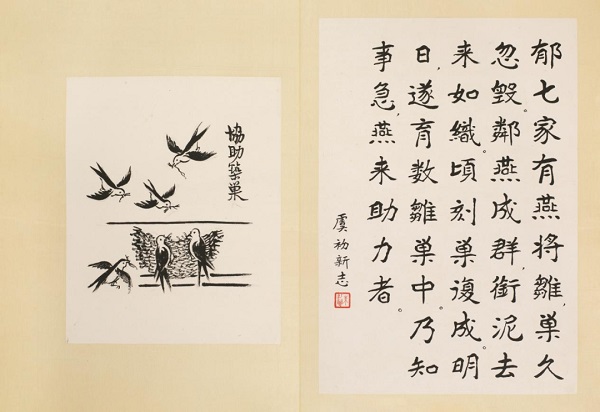 郁七家有燕将雛,巢久
忽毀。鄰燕成群,銜泥去
来如織。頃刻巢復成。明
日,遂育数雛巢中。乃知
事急,燕来助力者。
虞初新志
協助築巢